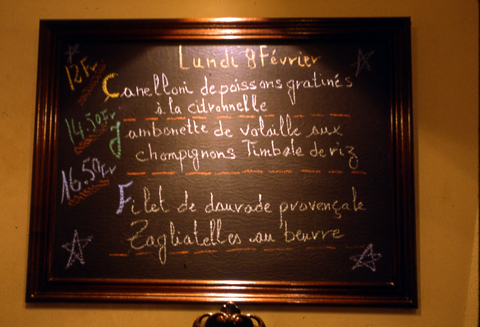 Lundi 8 Février
12 Fr
Canelloni de poissons gratinés
à la citronnelle
14.50 Fr
Jambonette de volaille aux
champignons Timbale de riz
16.50 Fr
Filet de daurade provençale
Tagliatelles au beurre